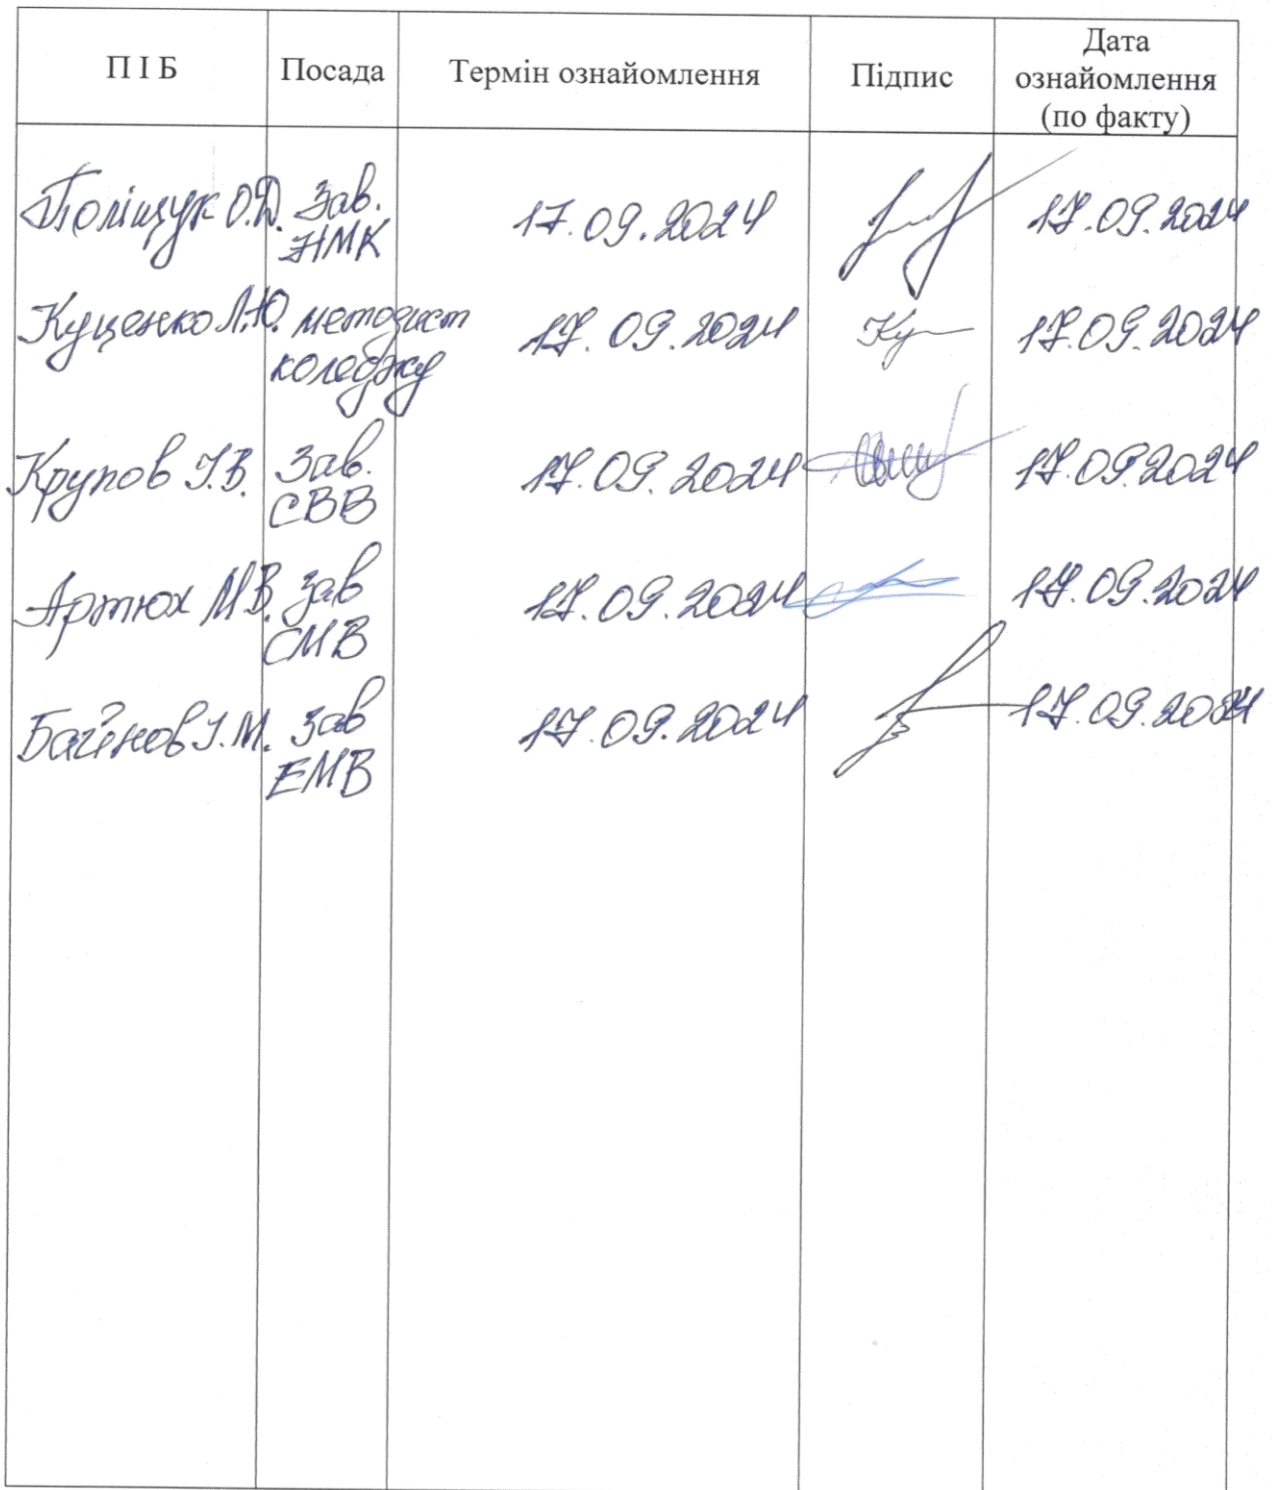 П І Б Посада Термін ознайомлення Підпис Дата ознайомлення (по факту)
Поліщук О.Д. Зав. НМК 17.09.2024 17.09.2024
Куценко Л.Ю. методист коледжу 17.09.2024 17.09.2024
Крупов І.В. Зав. СВВ 17.09.2024 17.09.2024
Артюх М.В. Зав СМВ 17.09.2024 17.09.2024
Баїнов І.М. Зав ЕМВ 17.09.2024 17.09.2024